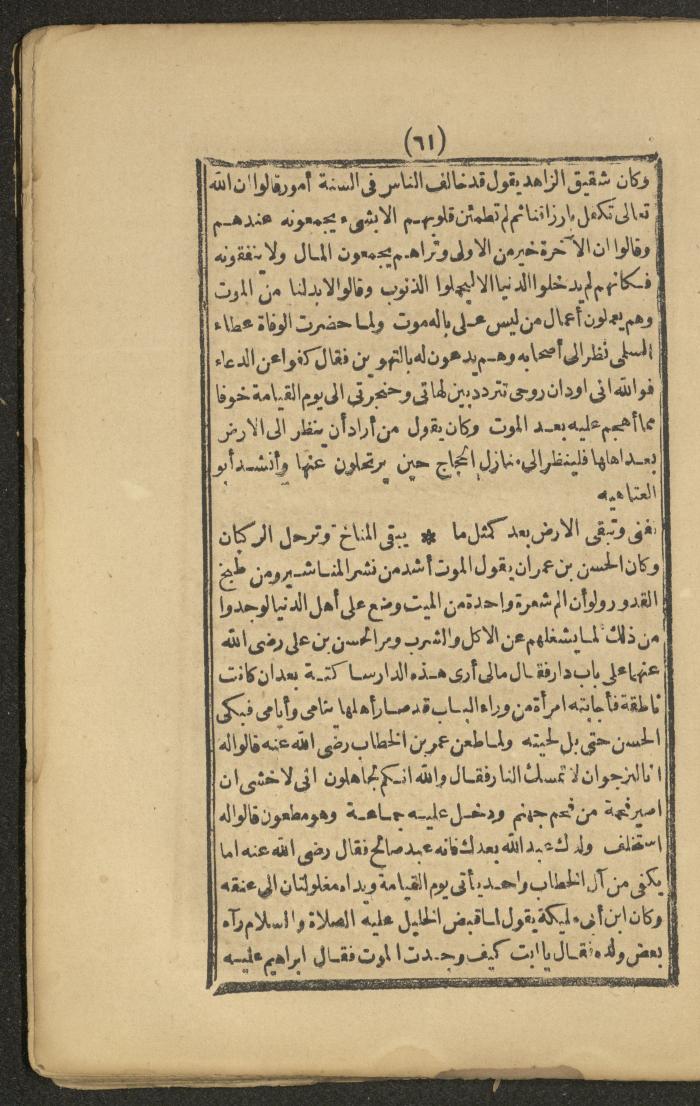 (٦١)
وكان شقيق الزاهد يقول قد خالف الناس فى السنة أمور قالوا ان الله
تعالى تكفل بارزاقنا ثم لم تطمئن قلوبهم الا بشىء يجمعونه عندهم
وقالوا ان الآخرة خير من الاولى وتراهم يجمعون المال ولا ينفقونه
فكانهم لم يدخلوا الدنيا الا ليحملوا الذنوب وقالوا لابد لنا من الموت
وهم يعملون أعمال من ليس على باله موت ولما حضرت الوفاة عطاء
السلمى نظر الى أصحابه وهم يدعون له بالتهوين فقال كفوا عن الدعاء
فوالله انى اود ان روحى تتردد بين لهاتى وحنجرتى الى يوم القيامة خوفا
مما أهجم عليه بعد الموت وكان يقول من أراد أن ينظر الى الارض
بعد اهلها فلينظر الى منازل الحجاج حين يرتحلون عنها وأنشد أبو
العتاهيه
نفنى وتبقى الارض بعد كمثل ما * يبقى المناخ وترحل الركبان
وكان الحسن بن عمران يقول الموت أشد من نشر المناشير ومن طبخ
القدور ولو أن الم شعرة واحدة من الميت وضع على أهل الدنيا لوجدوا
من ذلك لما يشغلهم عن الاكل والشرب ومر الحسن بن على رضى الله
عنهما على باب دار فقال مالى أرى هذه الدار ساكتة بعد ان كانت
ناطقة فأجابته امرأة من وراء الباب قد صار أهلها يتامى وأيامى فبكى
الحسن حتى بل لحيته ولما طعن عمر بن الخطاب رضى الله عنه قالوا له
انا لنرجو ان لا تمسك النار فقال والله انكم لجاهلون انى لاخشى ان
اصير فحمة من فحم جهنم ودخل عليه جماعة وهو مطعون قالوا له
استخلف ولدك عبد الله بعدك فانه عبد صالح فقال رضى الله عنه اما
يكفى من آل الخطاب واحد يأتى يوم القيامة ويداه مغلولتان الى عنقه
وكان ابن أبى مليكة يقول لما قبض الخليل عليه الصلاة والسلام رآه
بعض ولده فقال يا ابت كيف وجدت الموت فقال ابراهيم عليه